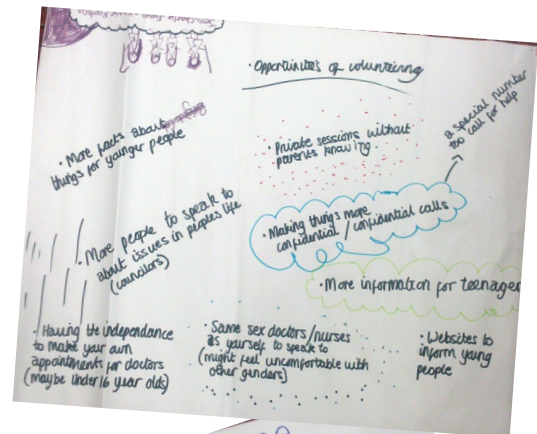 · Opportunites of volunteering
a special number
too call for help
· More facts about
things for younger people
· Private sessions without
parents knowing.
· More people to speak to
about issues in peoples life
(councilors)
· Making things more
confidential / confidential calls
· More information for teenager
· Having the independance
to make your own
appointments for doctors
(maybe under 16 year olds)
· Same sex doctors/nurses
as yourself to speak to
(might feel uncomfortable with
other genders)
· Websites to
inform young
people